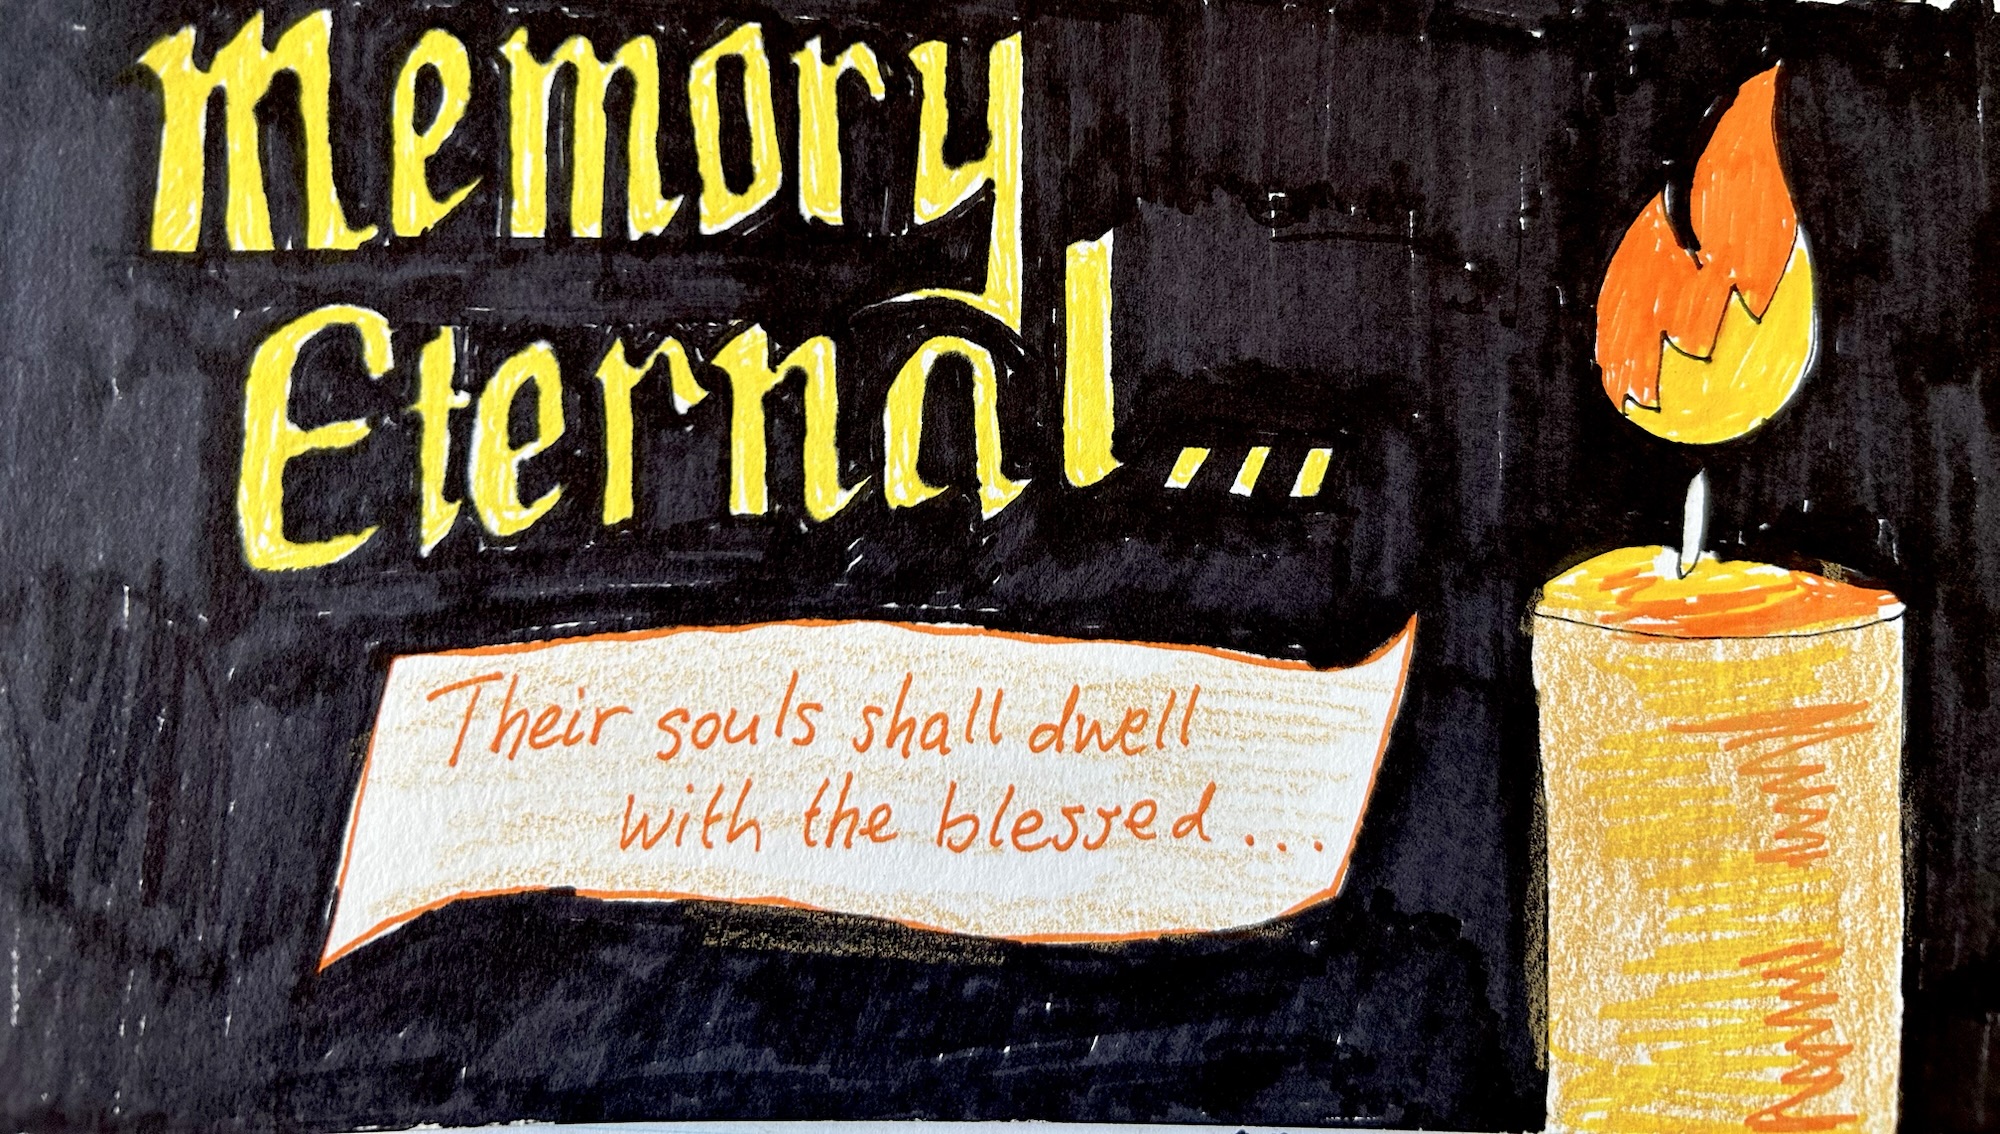 Memory
Eternal...
Their souls shall dwell
with the blessed...